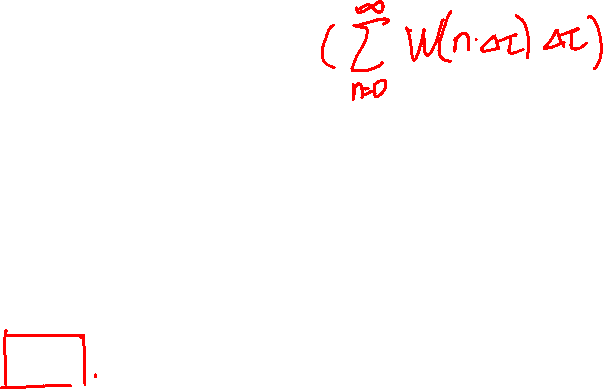 (∑_{n=0}^{∞} W(n·Δτ) Δτ)